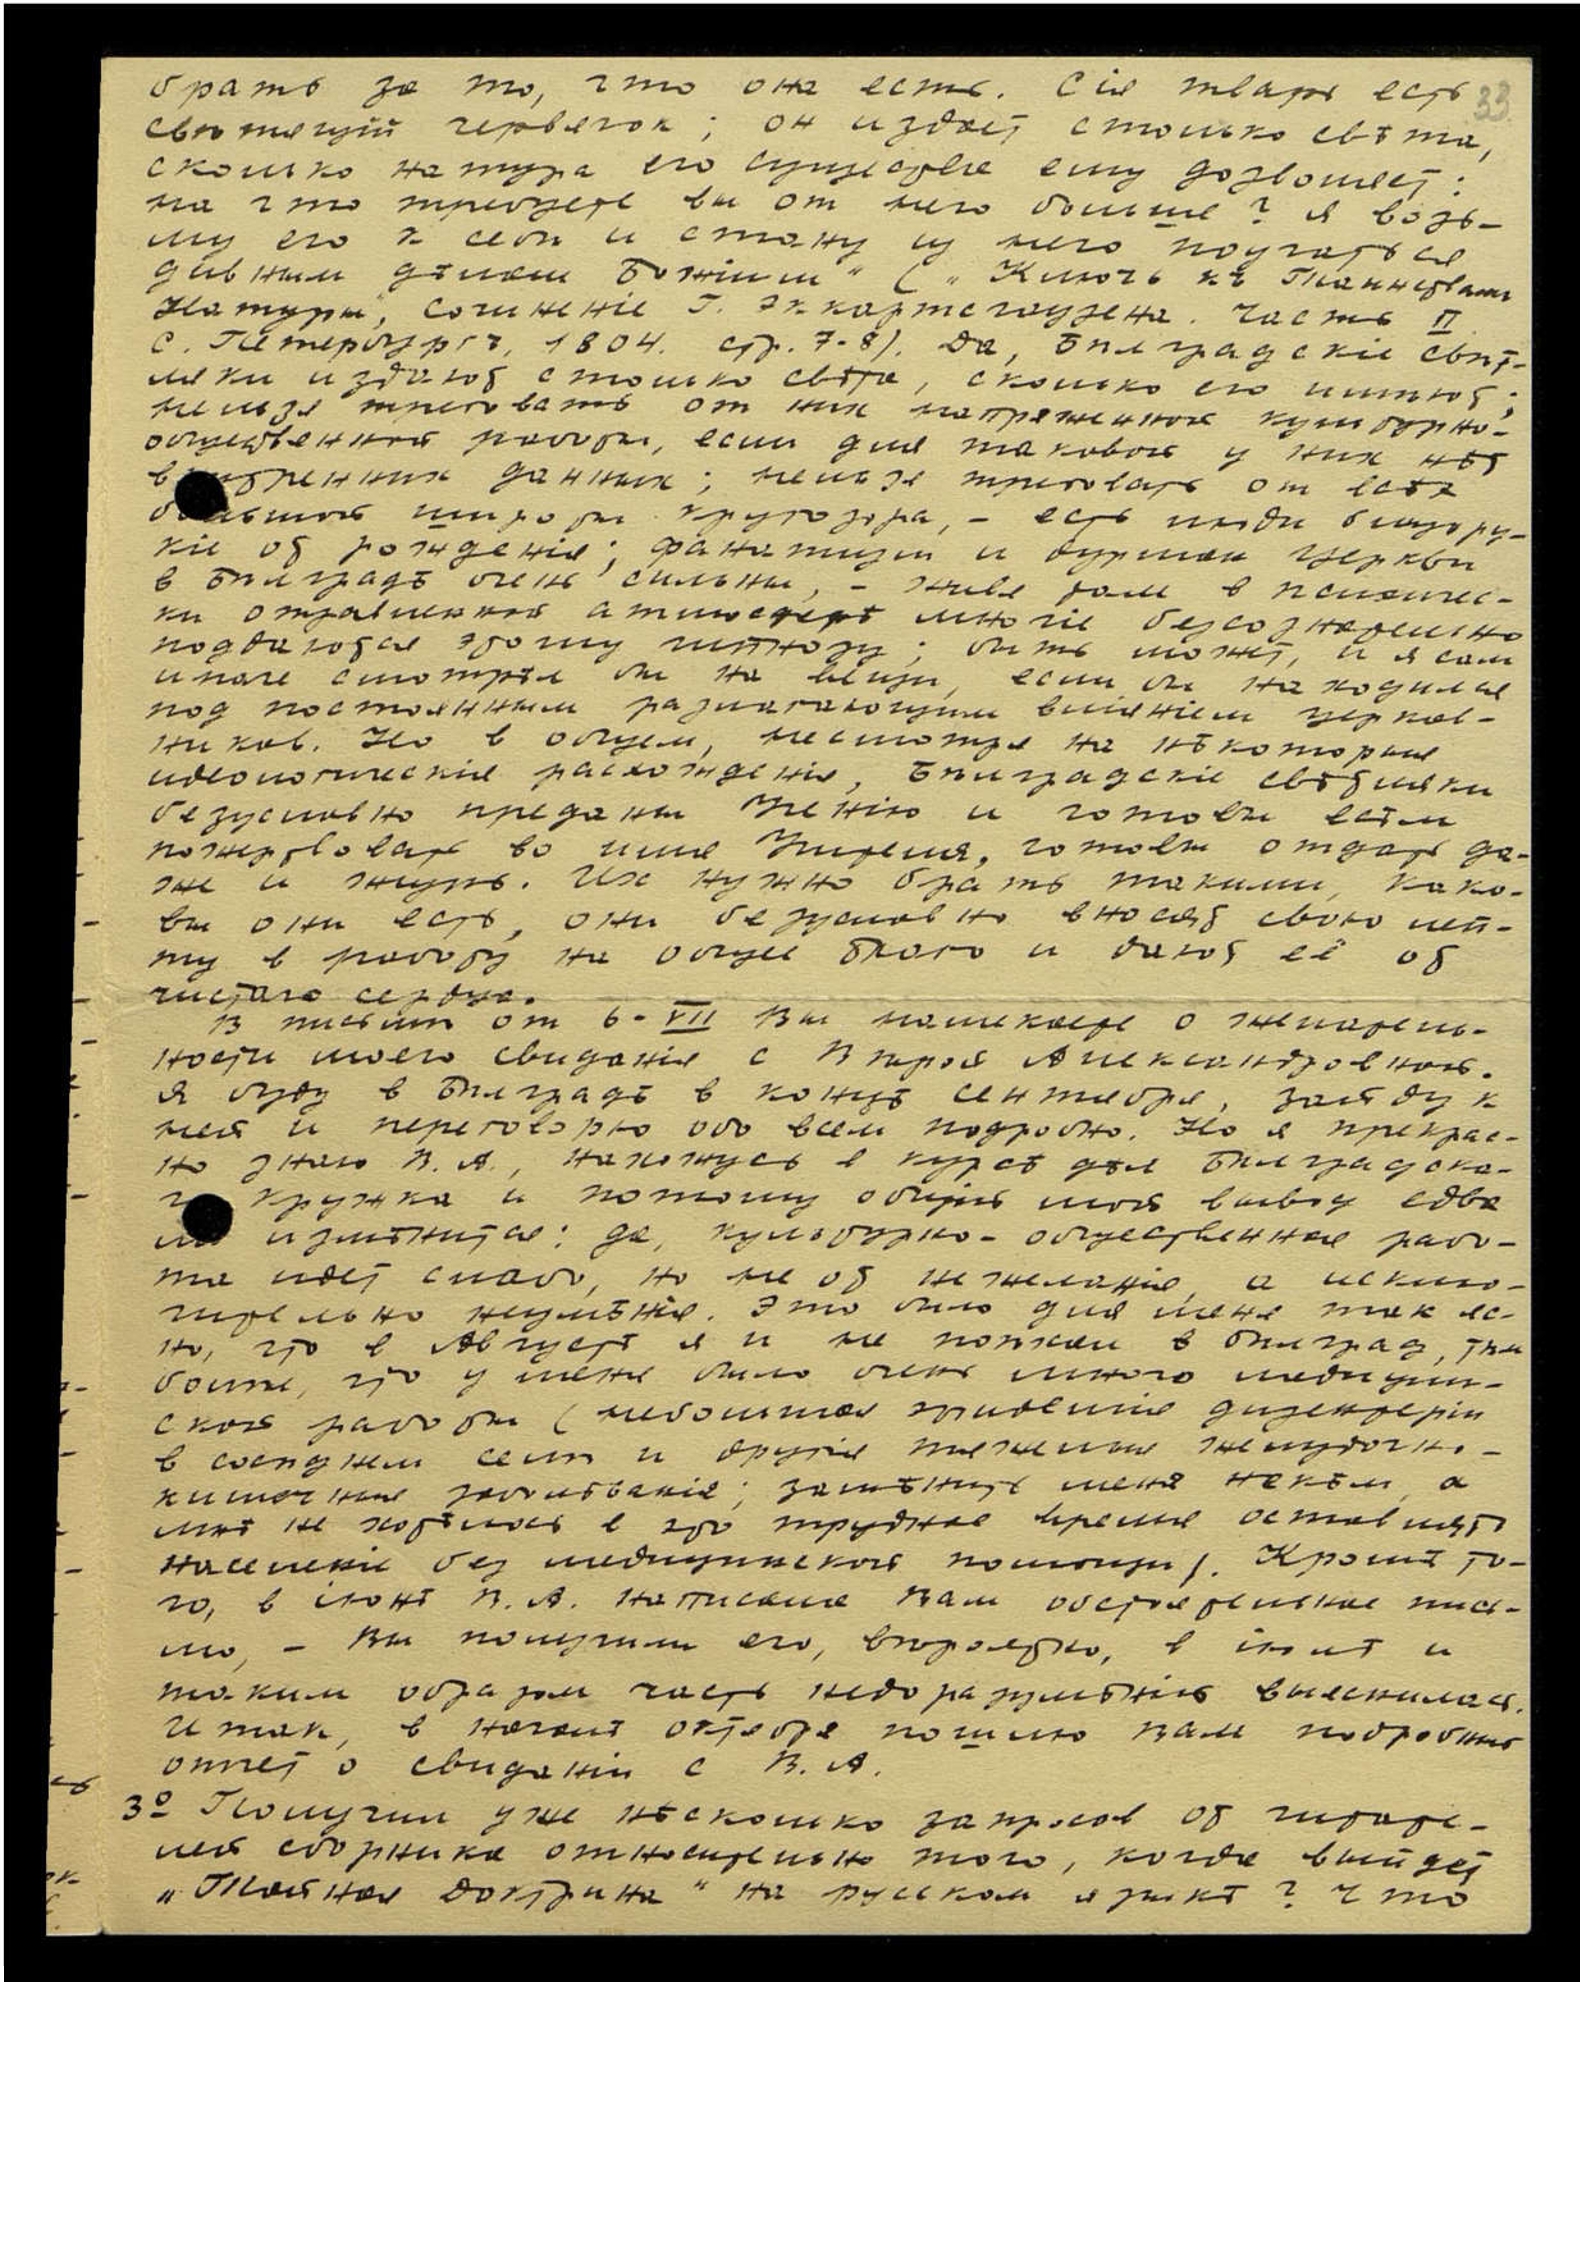 33.
брать за то, что она есть. Сія тварь есть
свѣтящій червячок; он издает столько свѣта,
сколько натура его существа ему дозволяет:
на что требуете вы от него больше? Я возь-
му его к себѣ и стану из него поучаться
дивным дѣлам Божіим" („Ключъ къ Таинствам
Натуры", сочиненіе Г. Эккартсгаузена. Часть II
С. Петербургъ, 1804. стр. 7-8). Да, Бѣлградскіе свѣт-
ляки издают столько свѣта, сколько его имѣют;
нельзя требовать от них напряженной культурно-
общественной работы, если для таковой у них нѣт
внутренних данных; нельзя требовать от всѣх
большой широты кругозора, – есть люди близору-
кіе от рожденія; фанатизм и дурман церкви
в Бѣлградѣ очень сильны, – живя там в психичес-
ки отравленной атмосферѣ многіе безсознательно
поддаются этому гипнозу; быть может, и я сам
иначе смотрѣл бы на вещи, если бы находился
под постоянным разлагающим вліяніем церков-
ников. Но в общем, несмотря на нѣкоторые
идеологическія расхожденія, Бѣлградскіе свѣтляки
безусловно преданы Ученію и готовы всѣм
пожертвовать во имя Учителя, готовы отдать да-
же и жизнь. Их нужно брать такими, како-
вы они есть, они безусловно вносят свою леп-
ту в работу на общее благо и дают её от
чистаго сердца.
В письмѣ от 6-VII Вы намекаете о желатель-
ности моего свиданія с Вѣрой Александровной.
Я буду в Бѣлградѣ в концѣ сентября, зайду к
ней и переговорю обо всем подробно. Но я прекрас-
но знаю В. А., нахожусь в курсѣ дѣл Бѣлградска-
го кружка и потому общій мой вывод едва
ли измѣнится: да, культурно-общественная рабо-
та идет слабо, но не от нежеланія, а исклю-
чительно неумѣнія. Это было для меня так яс-
но, что в Августѣ я и не поѣхал в Бѣлград, тѣм
более, что у меня было очень много медицин-
ской работы (небольшая эпидемія дизентеріи
в сосѣднем селѣ и другія тяжелыя желудочно-
кишечныя заболѣванія; замѣнить меня некѣм, а
мнѣ не хотѣлось в это трудное время оставлять
населеніе без медицинской помощи). Кромѣ то-
го, в іюнѣ В. А. написала Вам обстоятельное пись-
мо, – Вы получили его, вѣроятно, в іюлѣ и
таким образом часть недоразумѣній выяснилась.
Итак, в началѣ октября пошлю Вам подробный
отчет о свиданіи с В. А.
3º Получил уже нѣсколько запросов от читате-
лей сборника относительно того, когда выйдет
„Тайная Доктрина" на русском языкѣ? Что